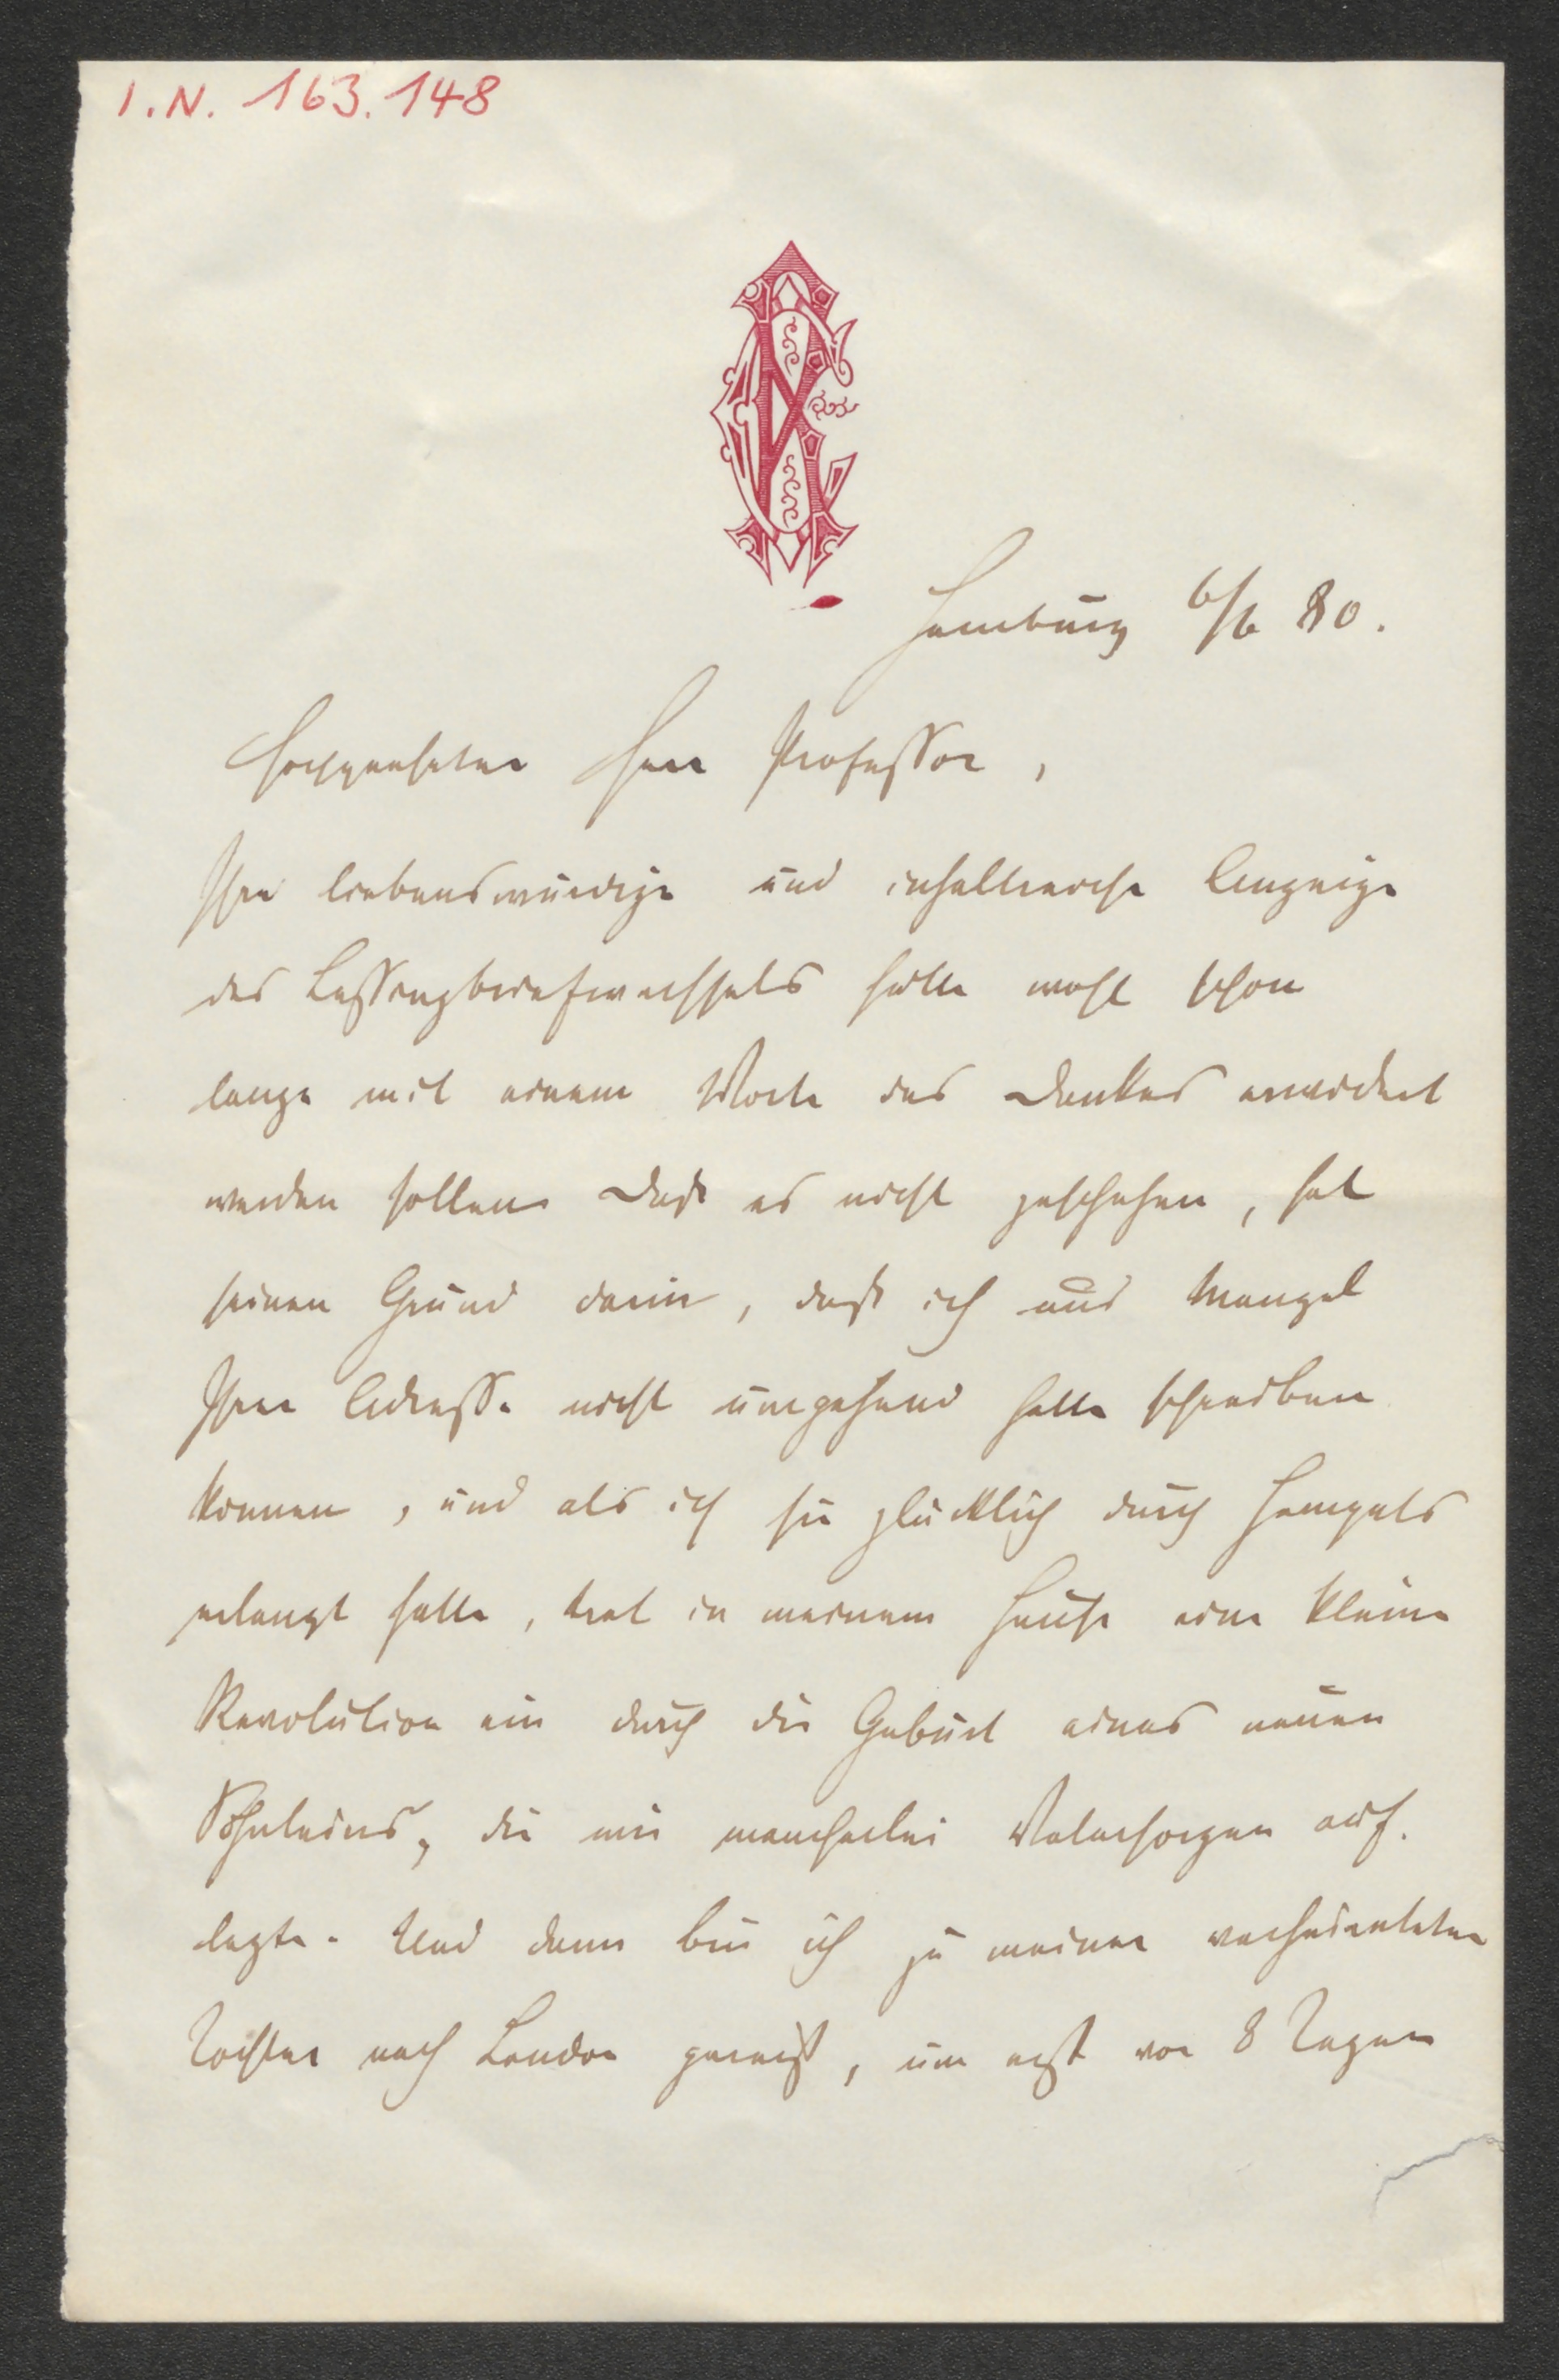 I.N. 163.148
Hamburg 6/6 80.
Hochgeehrter Herr Professor,
Ihre liebenswürdige und inhaltreiche Anzeige
des Lessingbriefwechsels hätte wohl schon
lange mit einem Worte des Dankes erwidert
werden sollen. Daß es nicht geschehen, hat
seinen Grund darin, daß ich aus Mangel
Ihrer Adresse nicht umgehend hatte schreiben
können, und als ich sie glücklich durch Hempels
erlangt hatte, trat in meinem Hause eine kleine
Revolution ein durch die Geburt eines neuen
Söhnleins, die mir mancherlei Vatersorgen auf-
legte. Und dann bin ich zu meiner verheirateten
Tochter nach London gereist, um erst vor 8 Tagen